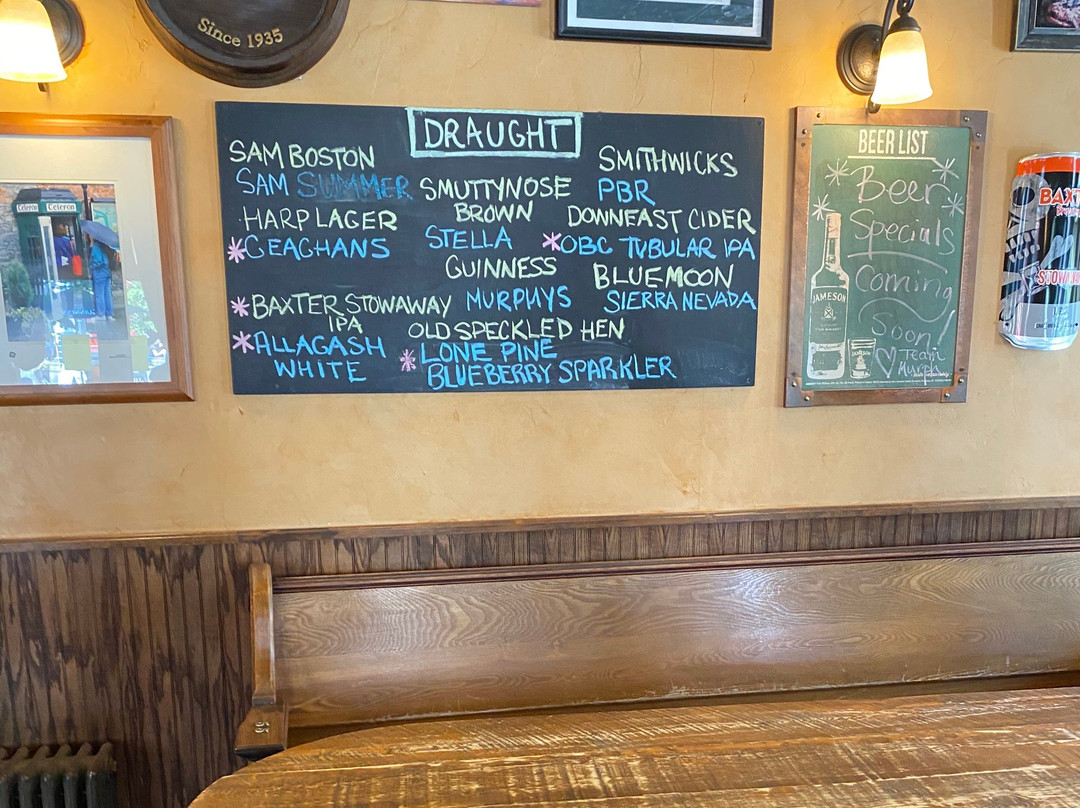 Since 1935
DRAUGHT
SAM BOSTON
SAM SUMMER
HARP LAGER
*GEAGHANS
*BAXTER STOWAWAY
IPA
*ALLAGASH
WHITE
SMUTTYNOSE
BROWN
STELLA
GUINNESS
MURPHYS
OLD SPECKLED HEN
*LONE PINE
BLUEBERRY SPARKLER
SMITHWICKS
PBR
DOWNEAST CIDER
*OBC TUBULAR IPA
BLUE MOON
SIERRA NEVADA
BEER LIST
Beer
Specials
Coming
Soon!
♡ Team
Murph
JAMESON
BAX
STOWA
Celeron